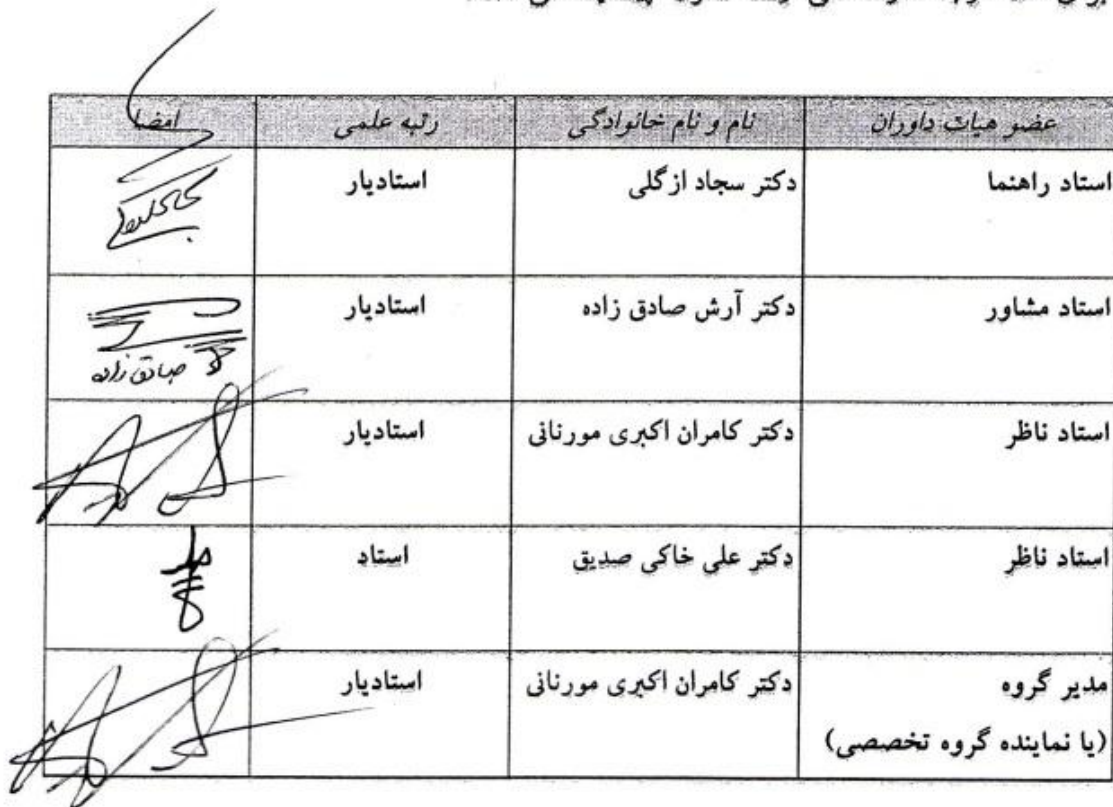 عضو هیات داوران نام و نام خانوادگی رتبه علمی امضا
استاد راهنما دکتر سجاد ازگلی استادیار
استاد مشاور دکتر آرش صادق زاده استادیار
صادق زاده
استاد ناظر دکتر کامران اکبری مورنانی استادیار
استاد ناظر دکتر علی خاکی صدیق استاد
مدیر گروه دکتر کامران اکبری مورنانی استادیار
(یا نماینده گروه تخصصی)